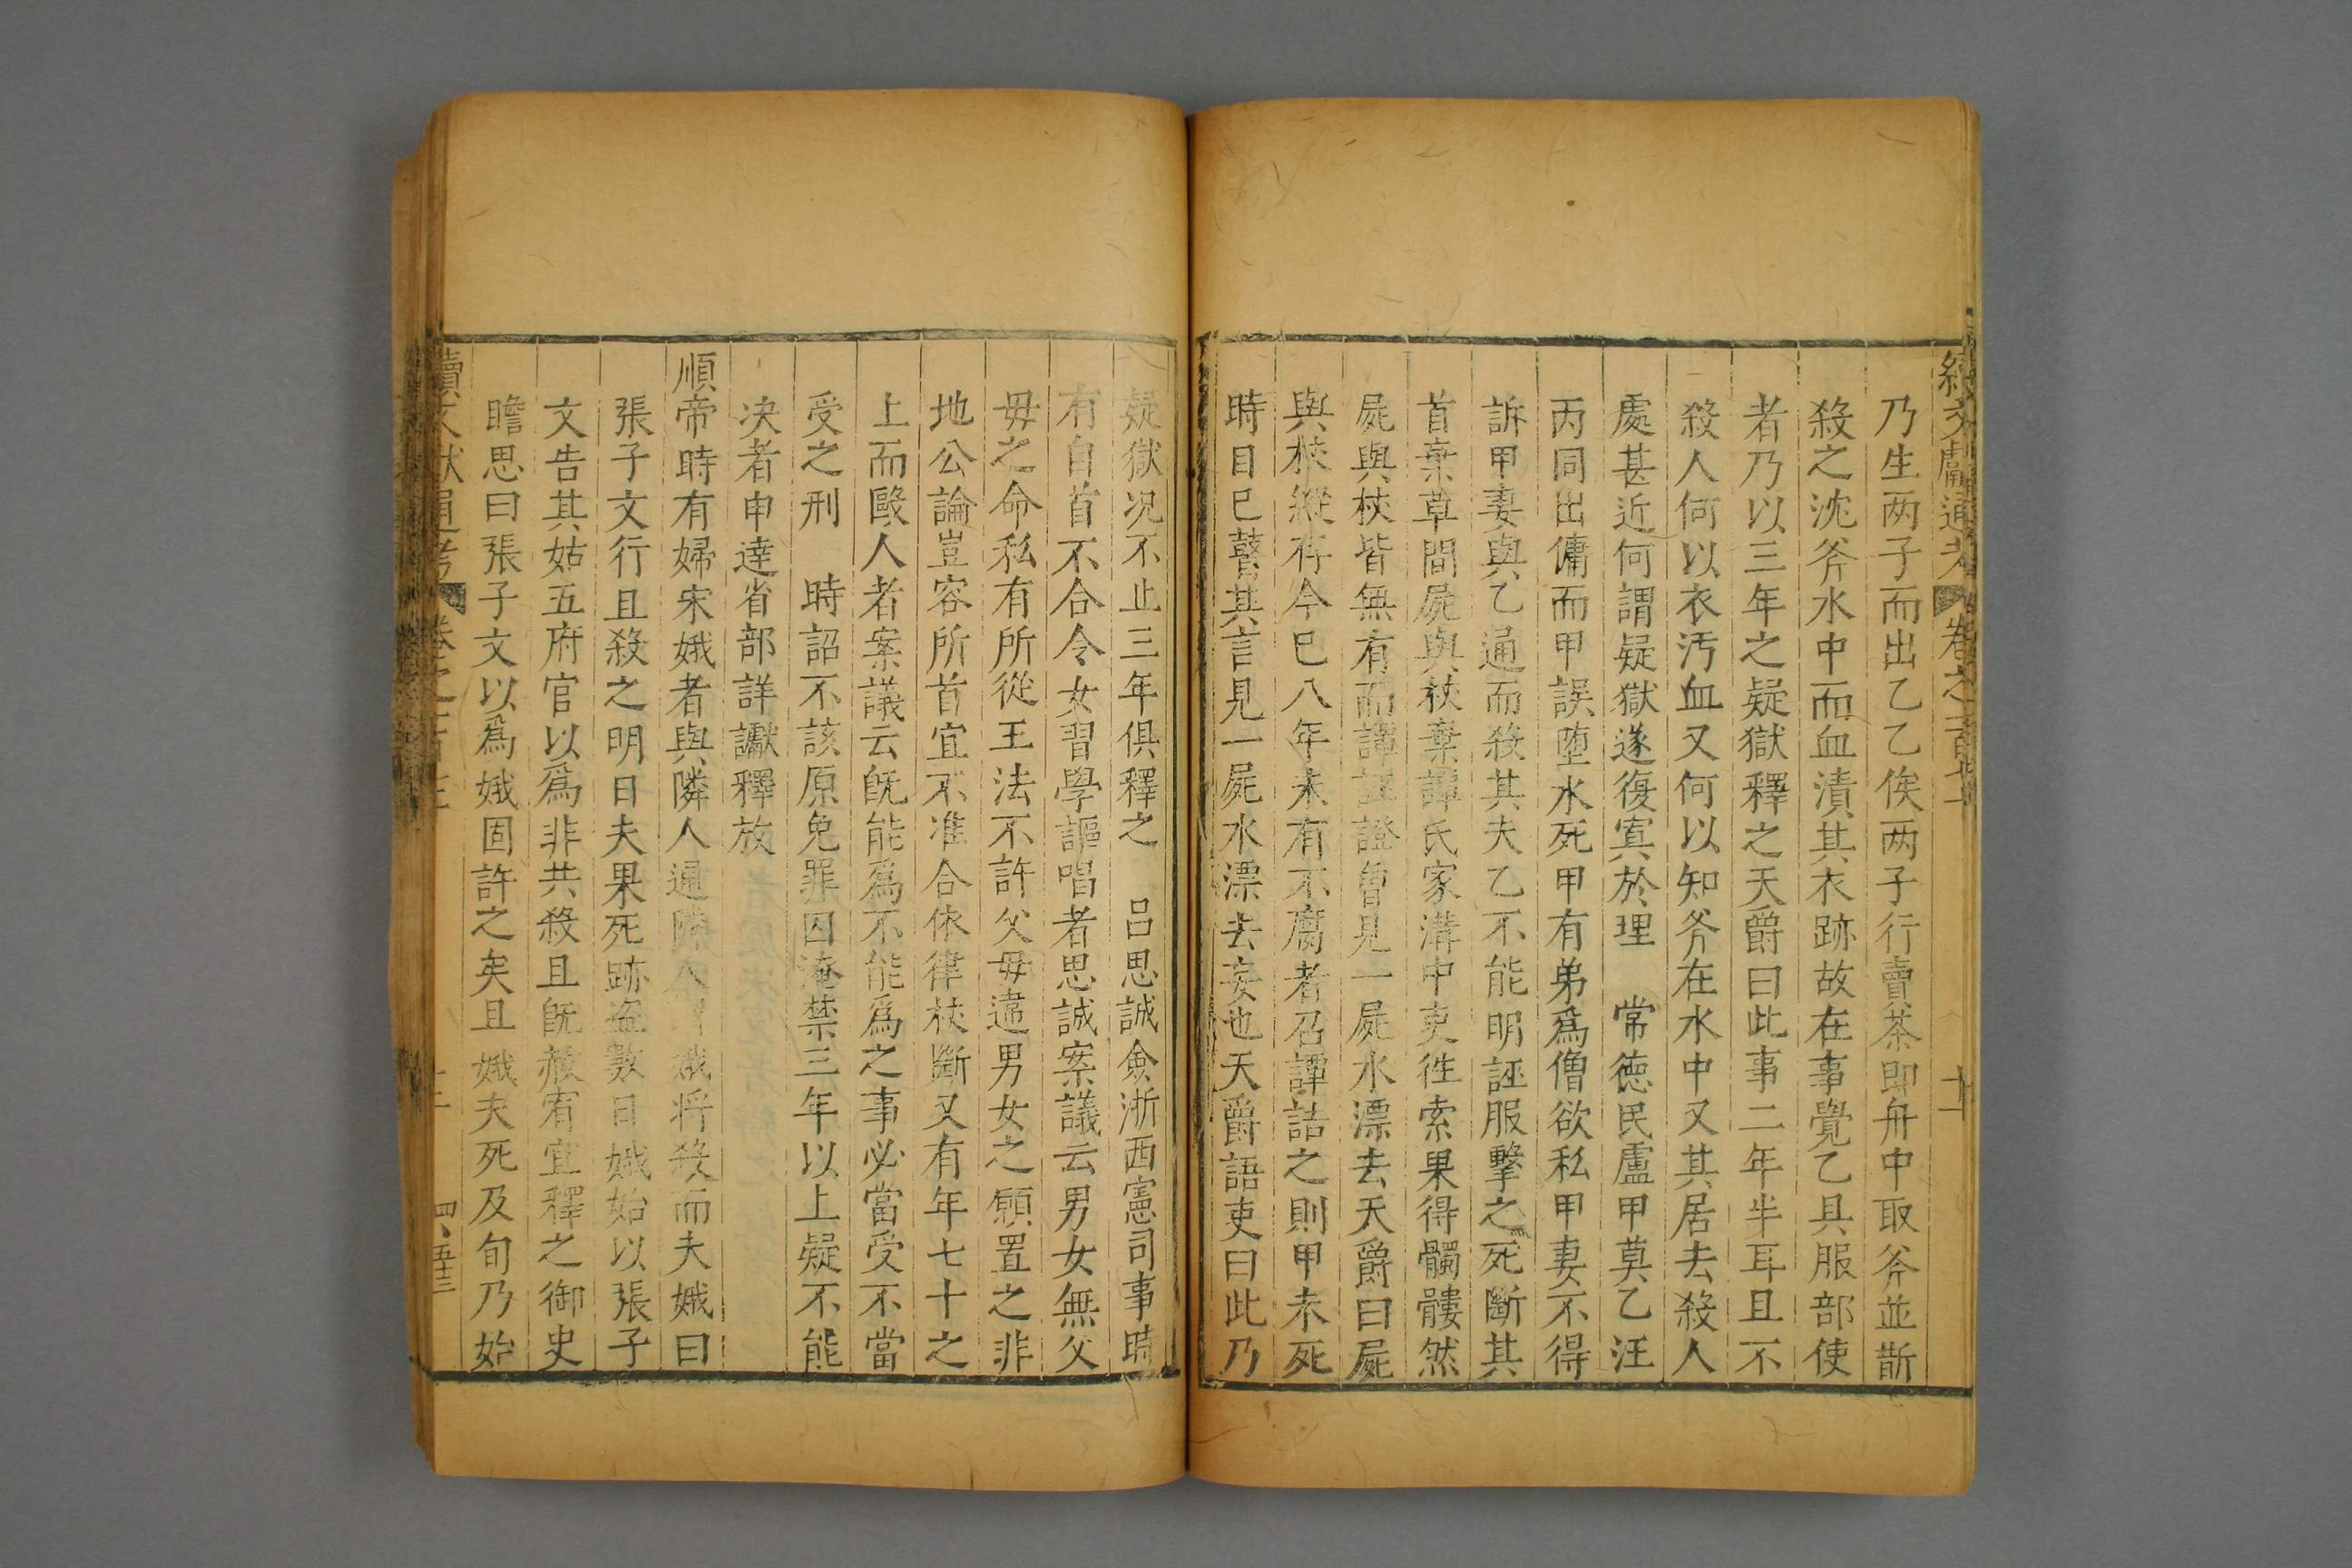 續文獻通考 卷之一百七十 十一
乃生两子而出乙乙俟两子行賣茶即舟中取斧並斮
殺之沈斧水中而血漬其衣跡故在事覺乙具服部使
者乃以三年之疑獄釋之天爵曰此事二年半耳且不
殺人何以衣汚血又何以知斧在水中又其居去殺人
處甚近何謂疑獄遂復寘於理 常徳民盧甲莫乙汪
丙同出傭而甲誤堕水死甲有弟爲僧欲私甲妻不得
訴甲妻與乙通而殺其夫乙不能明誣服擊之死斷其
首棄草間屍與杖棄譚氏家溝中吏徃索果得髑髏然
屍與杖皆無有而譚誣證曽見一屍水漂去天爵曰屍
與杖縱存今已八年未有不腐者召譚詰之則甲未死
時目已瞽其言見一屍水漂去妄也天爵語吏曰此乃
疑獄况不止三年俱釋之 吕思誠僉浙西憲司事時
有自首不合令女習學謳唱者思誠案議云男女無父
毋之命私有所從王法不許父毋違男女之願置之非
地公論豈容所首宜不准合依律杖斷又有年七十之
上而毆人者案議云旣能爲不能爲之事必當受不當
受之刑 時詔不該原免罪囚淹禁三年以上疑不能
决者申逹省部詳讞釋放
順帝時有婦宋娥者與隣人通隣人謂娥将殺而夫娥曰
張子文行且殺之明日夫果死跡盗數日娥始以張子
文告其姑五府官以爲非共殺且旣赦宥宜釋之御史
瞻思曰張子文以爲娥固許之矣且娥夫死及旬乃始
續文獻通考 卷之一百 四 五十三